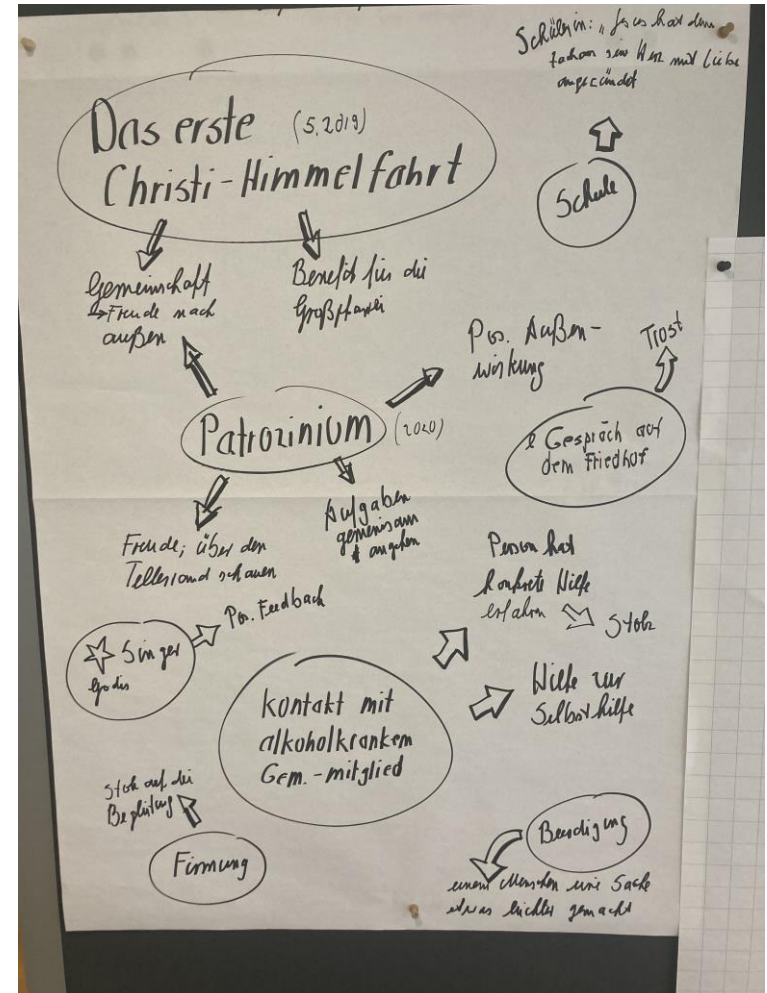 Schülerin: "Jesus hat dem
sein Herz mit Liebe
angezündet
Schule
Das erste (5.2019)
Christi-Himmelfahrt
Gemeinschaft
→ Freude nach
außen
Benefit für die
Großpfarrei
Pos. Außen-
wirkung
Trost
Gespräch auf
dem Friedhof
Patrozinium (2020)
Freude; über den
Tellerrand schauen
Aufgaben
gemeinsam
angehen
Person hat
konkrete Hilfe
erfahren
Stolz
Pos. Feedback
Singer
Godis
Kontakt mit
alkoholkrankem
Gem.-mitglied
Hilfe zur
Selbsthilfe
Stolz auf die
Begleitung
Firmung
Beerdigung
einem Menschen eine Sache
etwas leichter gemacht